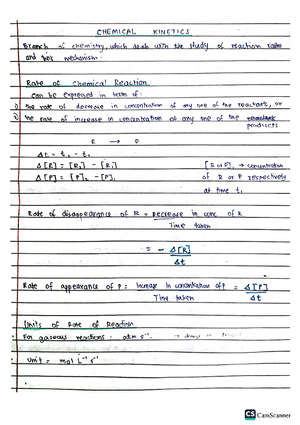 CHEMICAL KINETICS
Branch of chemistry, which deals with the study of reaction rates
and their mechanism.
Rate of Chemical Reaction
can be expressed in term of:
1) the rate of decrease in concentration of any one of the reactants, or
2) the rate of increase in concentration of any one of the products
R → P
Δt = t₂ - t₁
Δ[R] = [R₂] - [R₁] [R or P]₁ → concentration
Δ[P] = [P]₂ - [P]₁ of R or P respectively
at time t₁
Rate of disappearance of R = Decrease in conc of R
Time taken
= - Δ[R]
Δt
Rate of appearance of P = Increase in concentration of P = Δ[P]
Time taken Δt
Units of Rate of Reaction
• For gaseous reactions : atm s⁻¹ →
• Unit = mol L⁻¹ s⁻¹
CS CamScanner